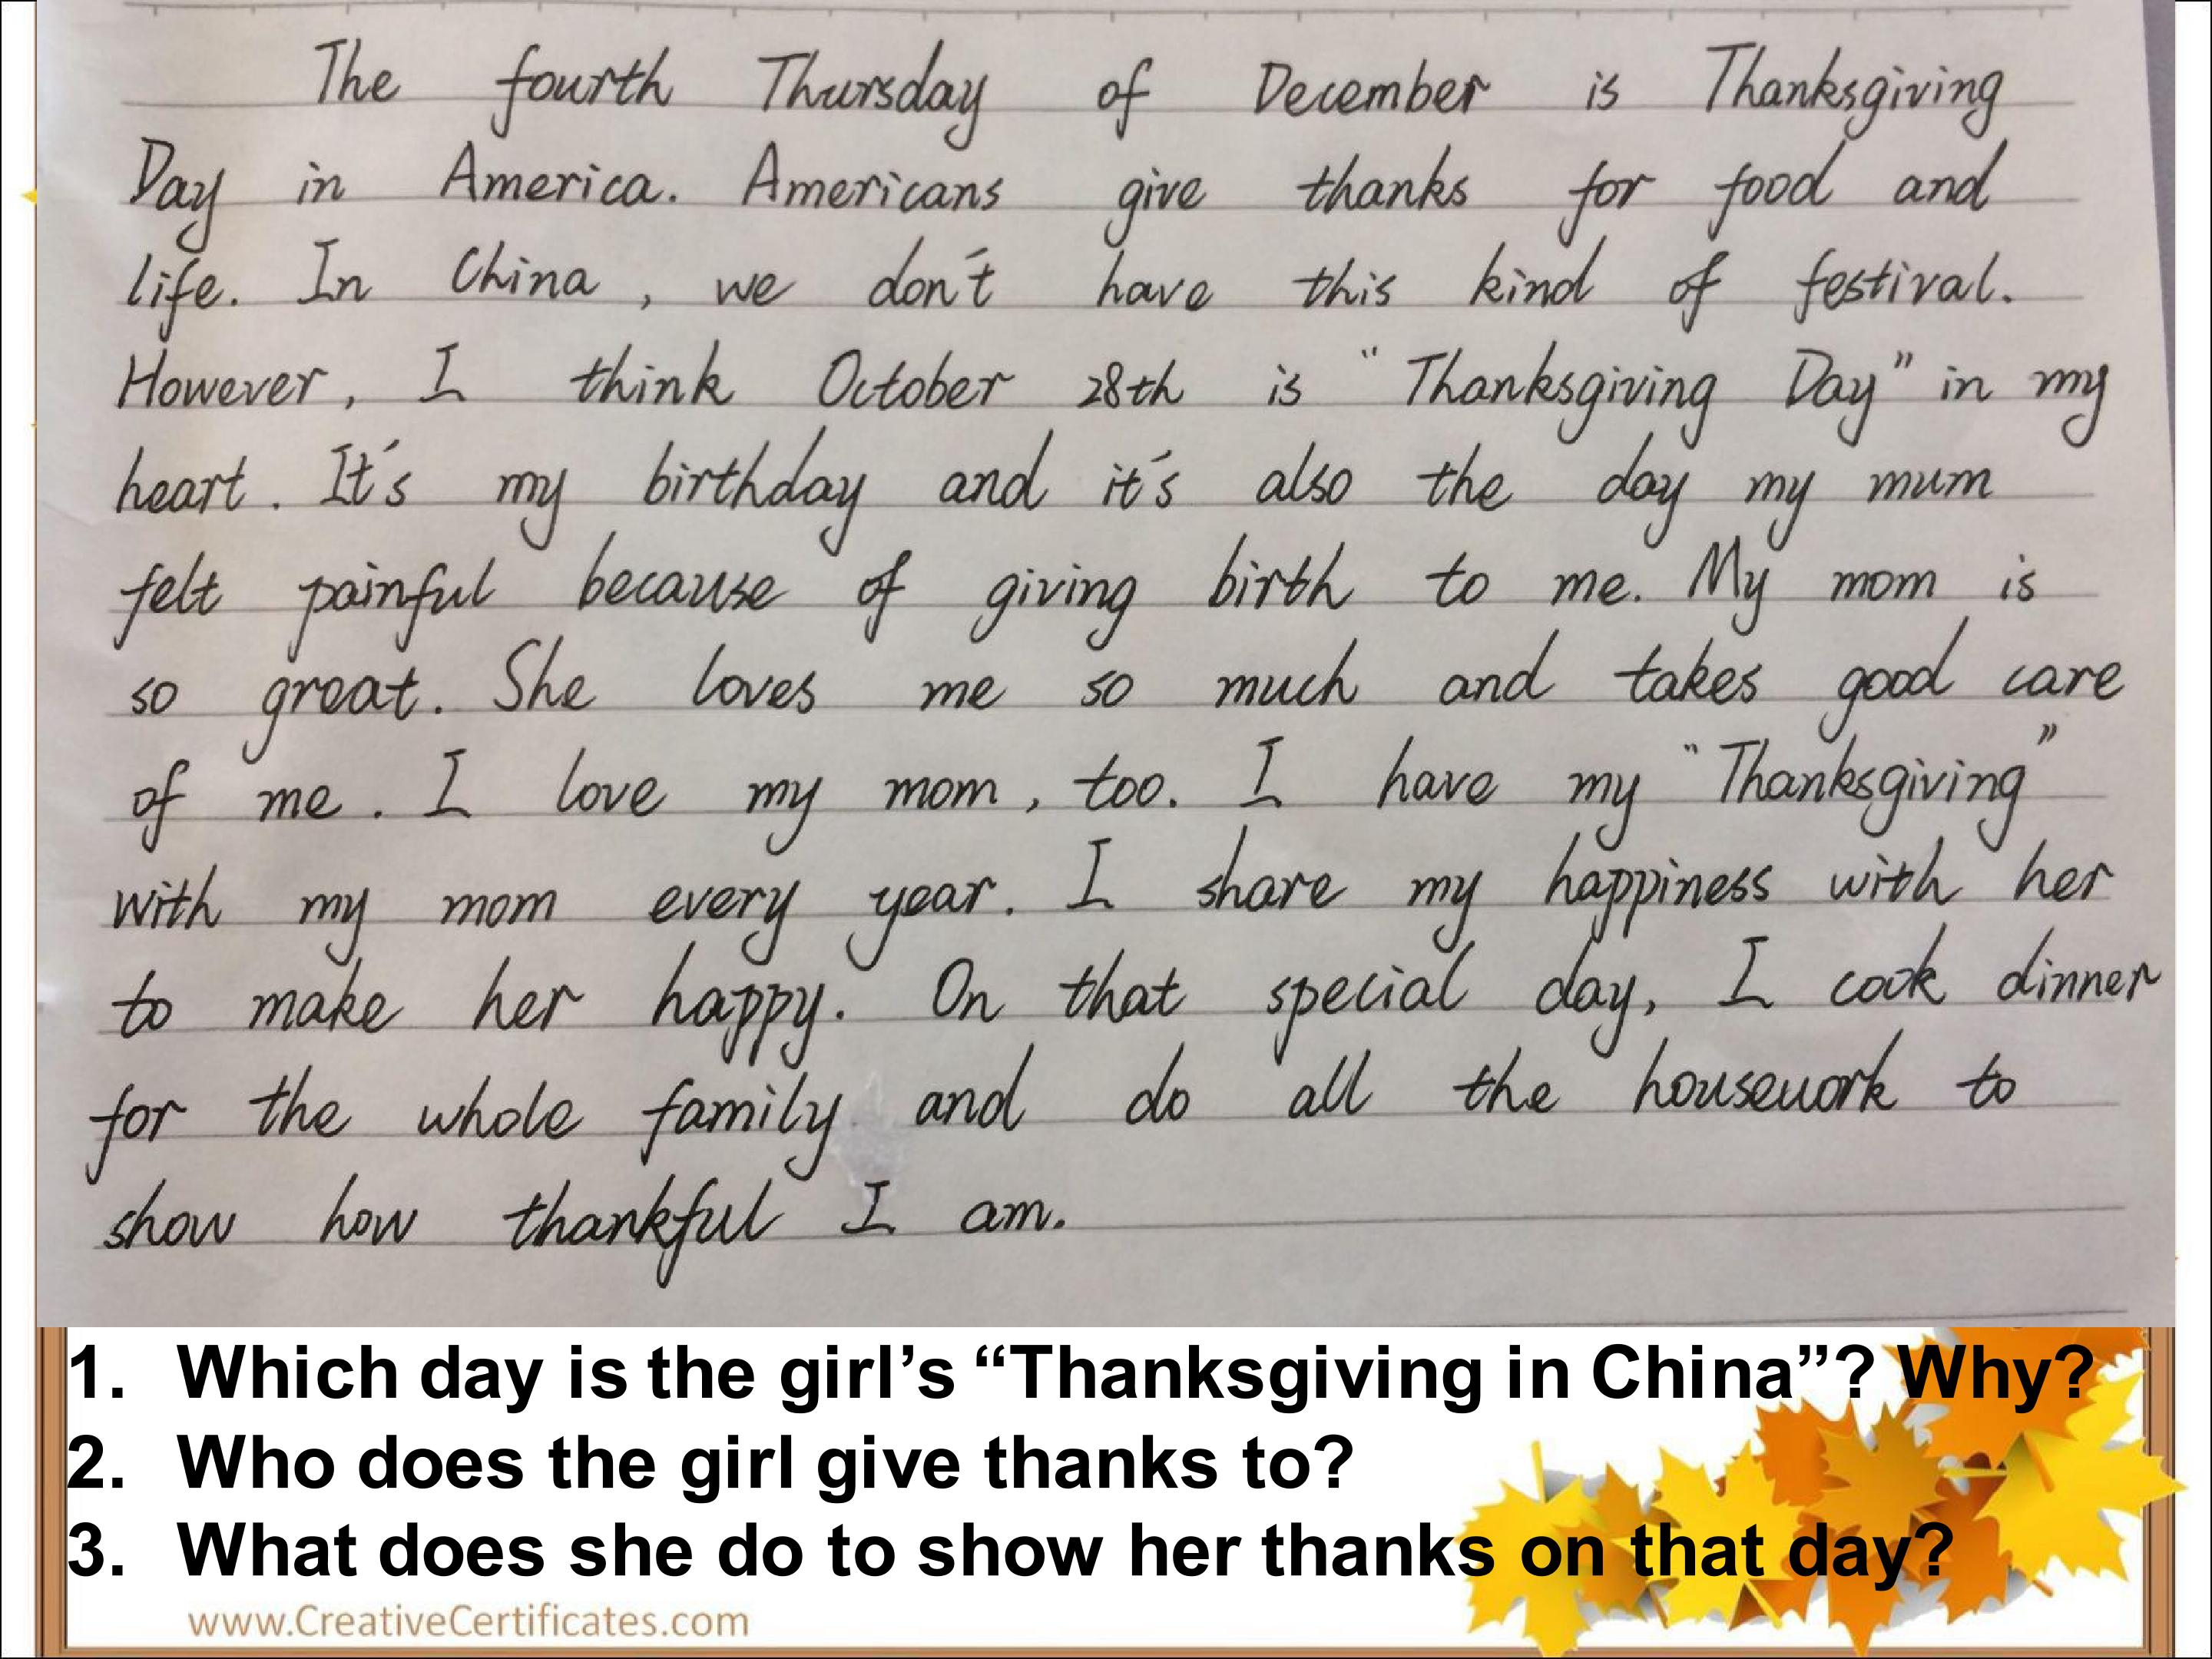 The fourth Thursday of December is Thanksgiving
Day in America. Americans give thanks for food and
life. In China, we don't have this kind of festival.
However, I think October 28th is "Thanksgiving Day" in my
heart. It's my birthday and it's also the day my mum
felt painful because of giving birth to me. My mom is
so great. She loves me so much and takes good care
of me. I love my mom, too. I have my "Thanksgiving"
with my mom every year. I share my happiness with her
to make her happy. On that special day, I cook dinner
for the whole family and do all the housework to
show how thankful I am.
1. Which day is the girl’s “Thanksgiving in China”? Why?
2. Who does the girl give thanks to?
3. What does she do to show her thanks on that day?
www.CreativeCertificates.com